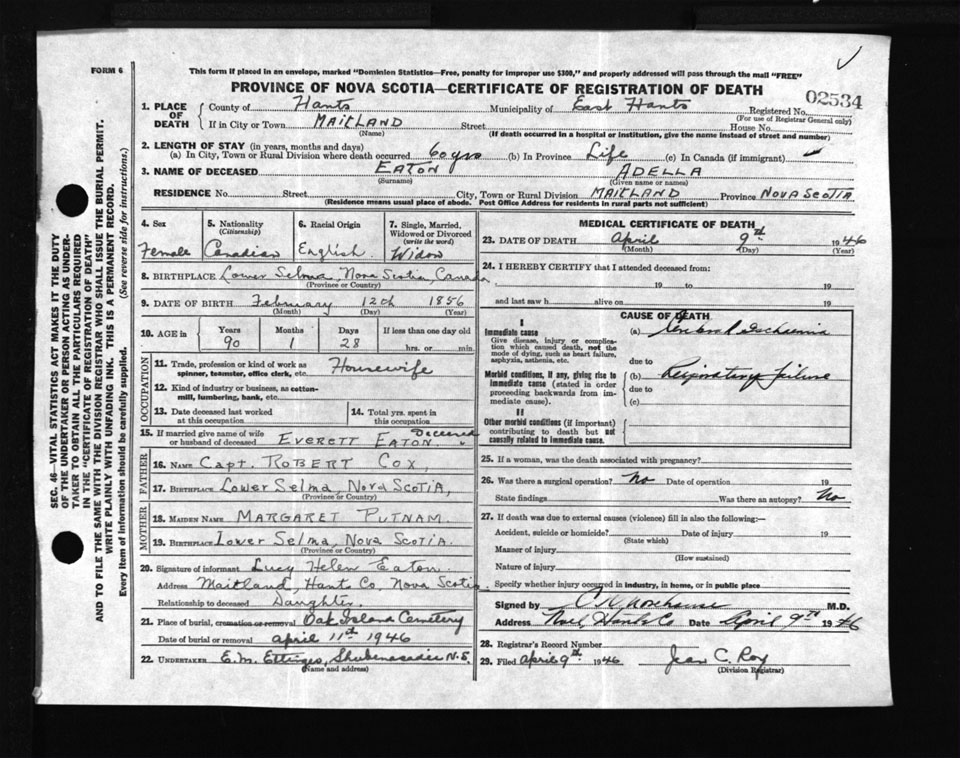 FORM 6
This form if placed in an envelope, marked "Dominion Statistics—Free, penalty for improper use $300," and properly addressed will pass through the mail "FREE"
PROVINCE OF NOVA SCOTIA—CERTIFICATE OF REGISTRATION OF DEATH
02534
1. PLACE OF DEATH
County of Hants Municipality of East Hants Registered No.
(For use of Registrar General only)
If in City or Town MAITLAND Street House No.
(Name) (If death occurred in a hospital or institution, give the name instead of street and number)
2. LENGTH OF STAY (in years, months and days)
(a) In City, Town or Rural Division where death occurred 60 yrs (b) In Province Life (c) In Canada (if immigrant)
3. NAME OF DECEASED EATON ADELLA
(Surname) (Given name or names)
RESIDENCE No. Street City, Town or Rural Division MAITLAND Province NOVA SCOTIA
(Residence means usual place of abode. Post Office Address for residents in rural parts not sufficient)
4. Sex
Female
5. Nationality
(Citizenship)
Canadian
6. Racial Origin
English
7. Single, Married, Widowed or Divorced
(write the word)
Widow
8. BIRTHPLACE Lower Selma, Nova Scotia, Canada
(Province or Country)
9. DATE OF BIRTH February 12th 1856
(Month) (Day) (Year)
10. AGE in
Years Months Days If less than one day old
90 1 28 hrs. or min.
OCCUPATION
11. Trade, profession or kind of work as spinner, teamster, office clerk, etc. Housewife
12. Kind of industry or business, as cotton-mill, lumbering, bank, etc.
13. Date deceased last worked at this occupation
14. Total yrs. spent in this occupation
15. If married give name of wife or husband of deceased EVERETT EATON Deceased
FATHER
16. NAME Capt. ROBERT COX,
17. BIRTHPLACE LOWER SELMA, NOVA SCOTIA,
(Province or Country)
MOTHER
18. MAIDEN NAME MARGARET PUTNAM.
19. BIRTHPLACE LOWER SELMA, NOVA SCOTIA.
(Province or Country)
20. Signature of informant Lucy Helen Eaton.
Address Maitland, Hants Co, Nova Scotia.
Relationship to deceased Daughter.
21. Place of burial, cremation or removal Oak Island Cemetery
Date of burial or removal april 11th 1946
22. UNDERTAKER E.M. Ettinger, Shubenacadie N.S.
(Name and address)
MEDICAL CERTIFICATE OF DEATH
23. DATE OF DEATH April 9th 1946
(Month) (Day) (Year)
24. I HEREBY CERTIFY that I attended deceased from:
19 to 19
and last saw h alive on 19
CAUSE OF DEATH
I
Immediate cause
Give disease, injury or complication which caused death, not the mode of dying, such as heart failure, asphyxia, asthenia, etc.
(a) Cerebral Ischaemia
due to
Morbid conditions, if any, giving rise to immediate cause (stated in order proceeding backwards from immediate cause).
(b) Respiratory failure
due to
(c)
II
Other morbid conditions (if important) contributing to death but not causally related to immediate cause.
25. If a woman, was the death associated with pregnancy?
26. Was there a surgical operation? No Date of operation 19
State findings Was there an autopsy? No
27. If death was due to external causes (violence) fill in also the following:—
Accident, suicide or homicide? Date of injury 19
(State which)
Manner of injury
(How sustained)
Nature of injury
Specify whether injury occurred in industry, in home, or in public place
Signed by M.D.
Address Noel Hants Co Date April 9th 1946
28. Registrar's Record Number
29. Filed april 9th 1946 Jean C. Roy
(Division Registrar)
SEC. 46—VITAL STATISTICS ACT MAKES IT THE DUTY
OF THE UNDERTAKER OR PERSON ACTING AS UNDER-
TAKER TO OBTAIN ALL THE PARTICULARS REQUIRED
IN THE "CERTIFICATE OF REGISTRATION OF DEATH"
AND TO FILE THE SAME WITH THE DIVISION REGISTRAR WHO SHALL ISSUE THE BURIAL PERMIT.
WRITE PLAINLY WITH UNFADING INK. THIS IS A PERMANENT RECORD.
Every item of information should be carefully supplied. (See reverse side for instructions.)